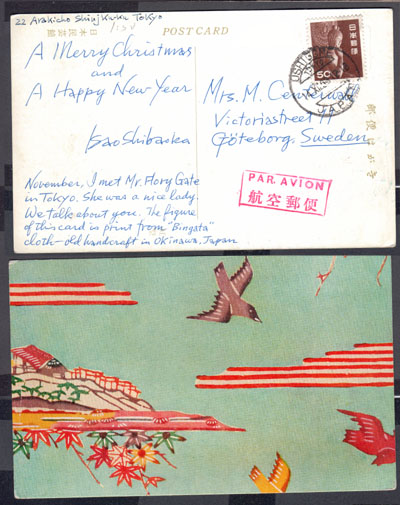 22 Arakicho Shinjkuku Tokyo
POST CARD
日本民芸館
A Merry Christmas
and
A Happy New Year
Isao Shibaoka
November, I met Mr. Flory Gate
in Tokyo. She was a nice lady.
We talk about you. The figure
of this card is print from "Bingata"
cloth-old handcraft in Okinawa, Japan
Mrs. M.
Victoriastreet 11
Göteborg, Sweden
PAR AVION
航空郵便
日本郵便
50
JAPAN
郵便はがき